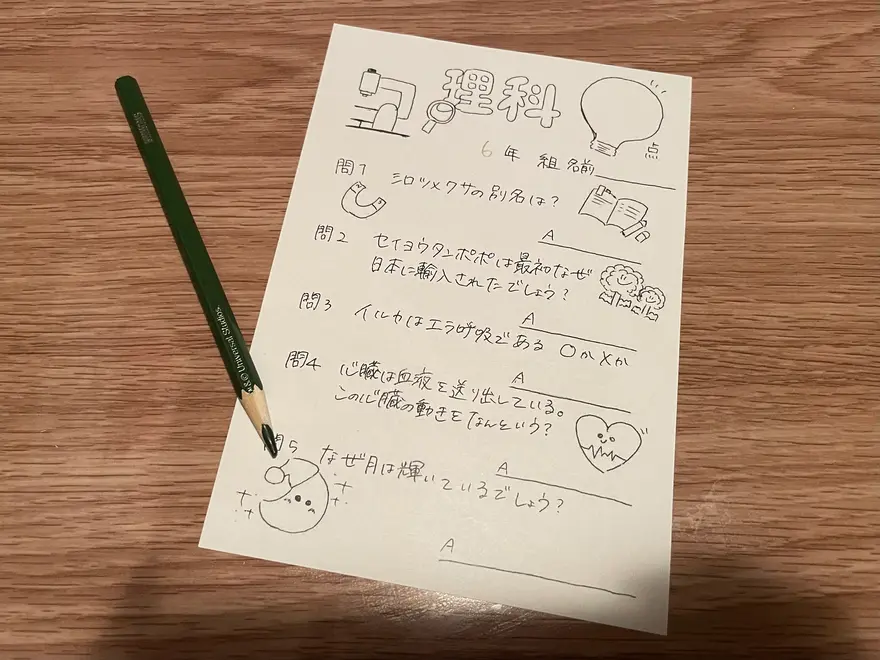 理科
点
6年 組 名前
問1 シロツメクサの別名は?
A
問2 セイヨウタンポポは最初なぜ
日本に輸入されたでしょう?
A
問3 イルカはエラ呼吸である ○か×か
A
問4 心臓は血液を送り出している。
この心臓の動きをなんという?
A
問5 なぜ月は輝いているでしょう?
A
& © Universal Studios.